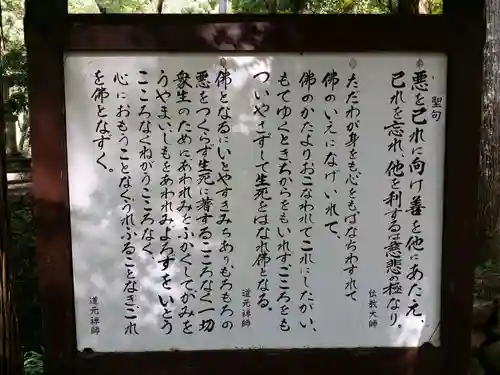 聖句
悪を己れに向け善を他にあたえ、
己れを忘れ、他を利するは慈悲の極なり。
伝教大師
ただわが身をも心をもはなちわすれて
佛のいえになげいれて、
佛のかたよりおこなわれてこれにしたがい、
もてゆくときちからをもいれずこころをも
ついやさずして生死をはなれ佛となる。
道元禅師
佛となるにいとやすきみちありもろもろの
悪をつくらず生死に著するこころなく一切
衆生のためにあわれみをふかくしてかみを
うやまいしもをあわれみよろずをいとう
こころなくねがうこころなく、
心におもうことなくうれふることなきこれ
を佛となずく。
道元禅師